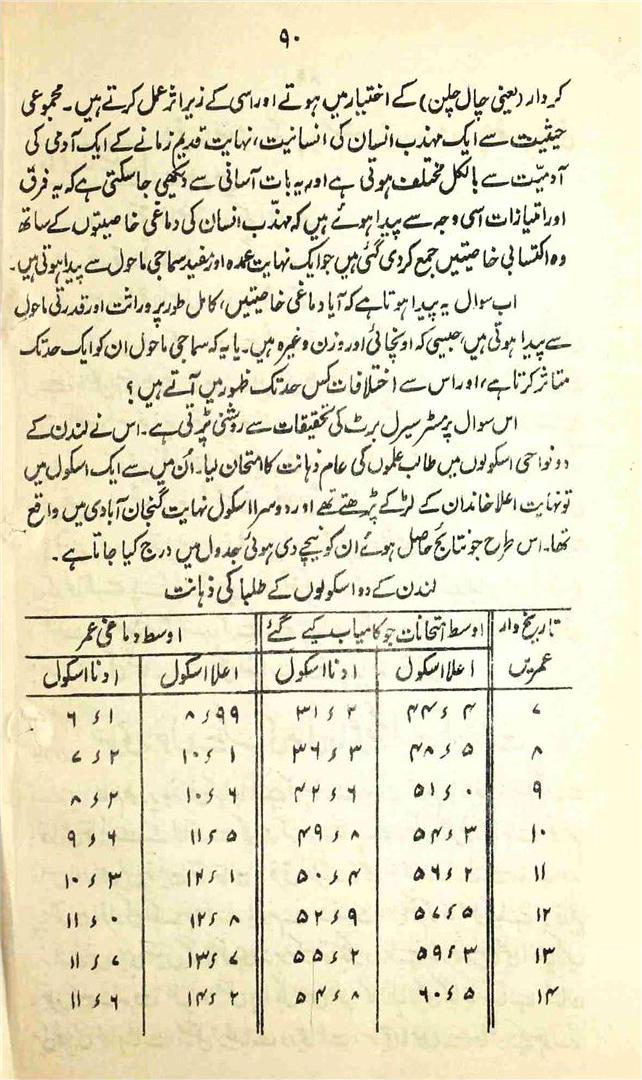 ۹۰
کردار (یعنی چال چلن) کے اختیار میں ہوتے اور اسی کے زیر اثر عمل کرتے ہیں۔ مجموعی
حیثیت سے ایک مہذب انسان کی انسانیت، نہایت قدیم زمانے کے ایک آدمی کی
آدمیّت سے بالکل مختلف ہوتی ہے اور یہ بات آسانی سے دیکھی جا سکتی ہے کہ یہ فرق
اور امتیازات اسی وجہ سے پیدا ہوئے ہیں کہ مہذّب انسان کی دماغی خاصیتوں کے ساتھ
وہ اکتسابی خاصیتیں جمع کر دی گئی ہیں جو ایک نہایت عمدہ اور مفید سماجی ماحول سے پیدا ہوتی ہیں۔
اب سوال یہ پیدا ہوتا ہے کہ آیا دماغی خاصیتیں، کامل طور پر وراثت اور قدرتی ماحول
سے پیدا ہوتی ہیں، جیسی کہ اونچائی اور وزن وغیرہ ہیں۔ یا یہ کہ سماجی ماحول ان کو ایک حد تک
متاثر کرتا ہے، اور اس سے اختلافات کس حد تک ظہور میں آتے ہیں؟
اس سوال پر مسٹر سیرل برٹ کی تحقیقات سے روشنی پڑتی ہے۔ اس نے لندن کے
دو نواحی اسکولوں میں طالب علموں کی عام ذہانت کا امتحان لیا۔ اُن میں سے ایک اسکول میں
تو نہایت اعلا خاندان کے لڑکے پڑھتے تھے اور دوسرا اسکول نہایت گنجان آبادی میں واقع
تھا۔ اس طرح جو نتائج حاصل ہوئے ان کو نیچے دی ہوئی جدول میں درج کیا جاتا ہے۔
لندن کے دو اسکولوں کے طلبا کی ذہانت
تاریخ وار عمریں | اوسط امتحانات جو کامیاب کیے گئے | اوسط دماغی عمر
اعلا اسکول | ادنا اسکول | اعلا اسکول | ادنا اسکول
۷ | ۴۴ء۴ | ۳۱ء۲ | ۸ء۹۹ | ۶ء۱
۸ | ۴۸ء۵ | ۳۶ء۳ | ۱۰ء۱ | ۷ء۲
۹ | ۵۱ء۰ | ۴۲ء۶ | ۱۰ء۶ | ۸ء۲
۱۰ | ۵۴ء۳ | ۴۹ء۸ | ۱۱ء۵ | ۹ء۶
۱۱ | ۵۶ء۲ | ۵۰ء۴ | ۱۲ء۱ | ۱۰ء۳
۱۲ | ۵۷ء۵ | ۵۲ء۹ | ۱۲ء۸ | ۱۱ء۰
۱۳ | ۵۹ء۳ | ۵۵ء۲ | ۱۳ء۷ | ۱۱ء۷
۱۴ | ۶۰ء۵ | ۵۴ء۸ | ۱۴ء۲ | ۱۱ء۶